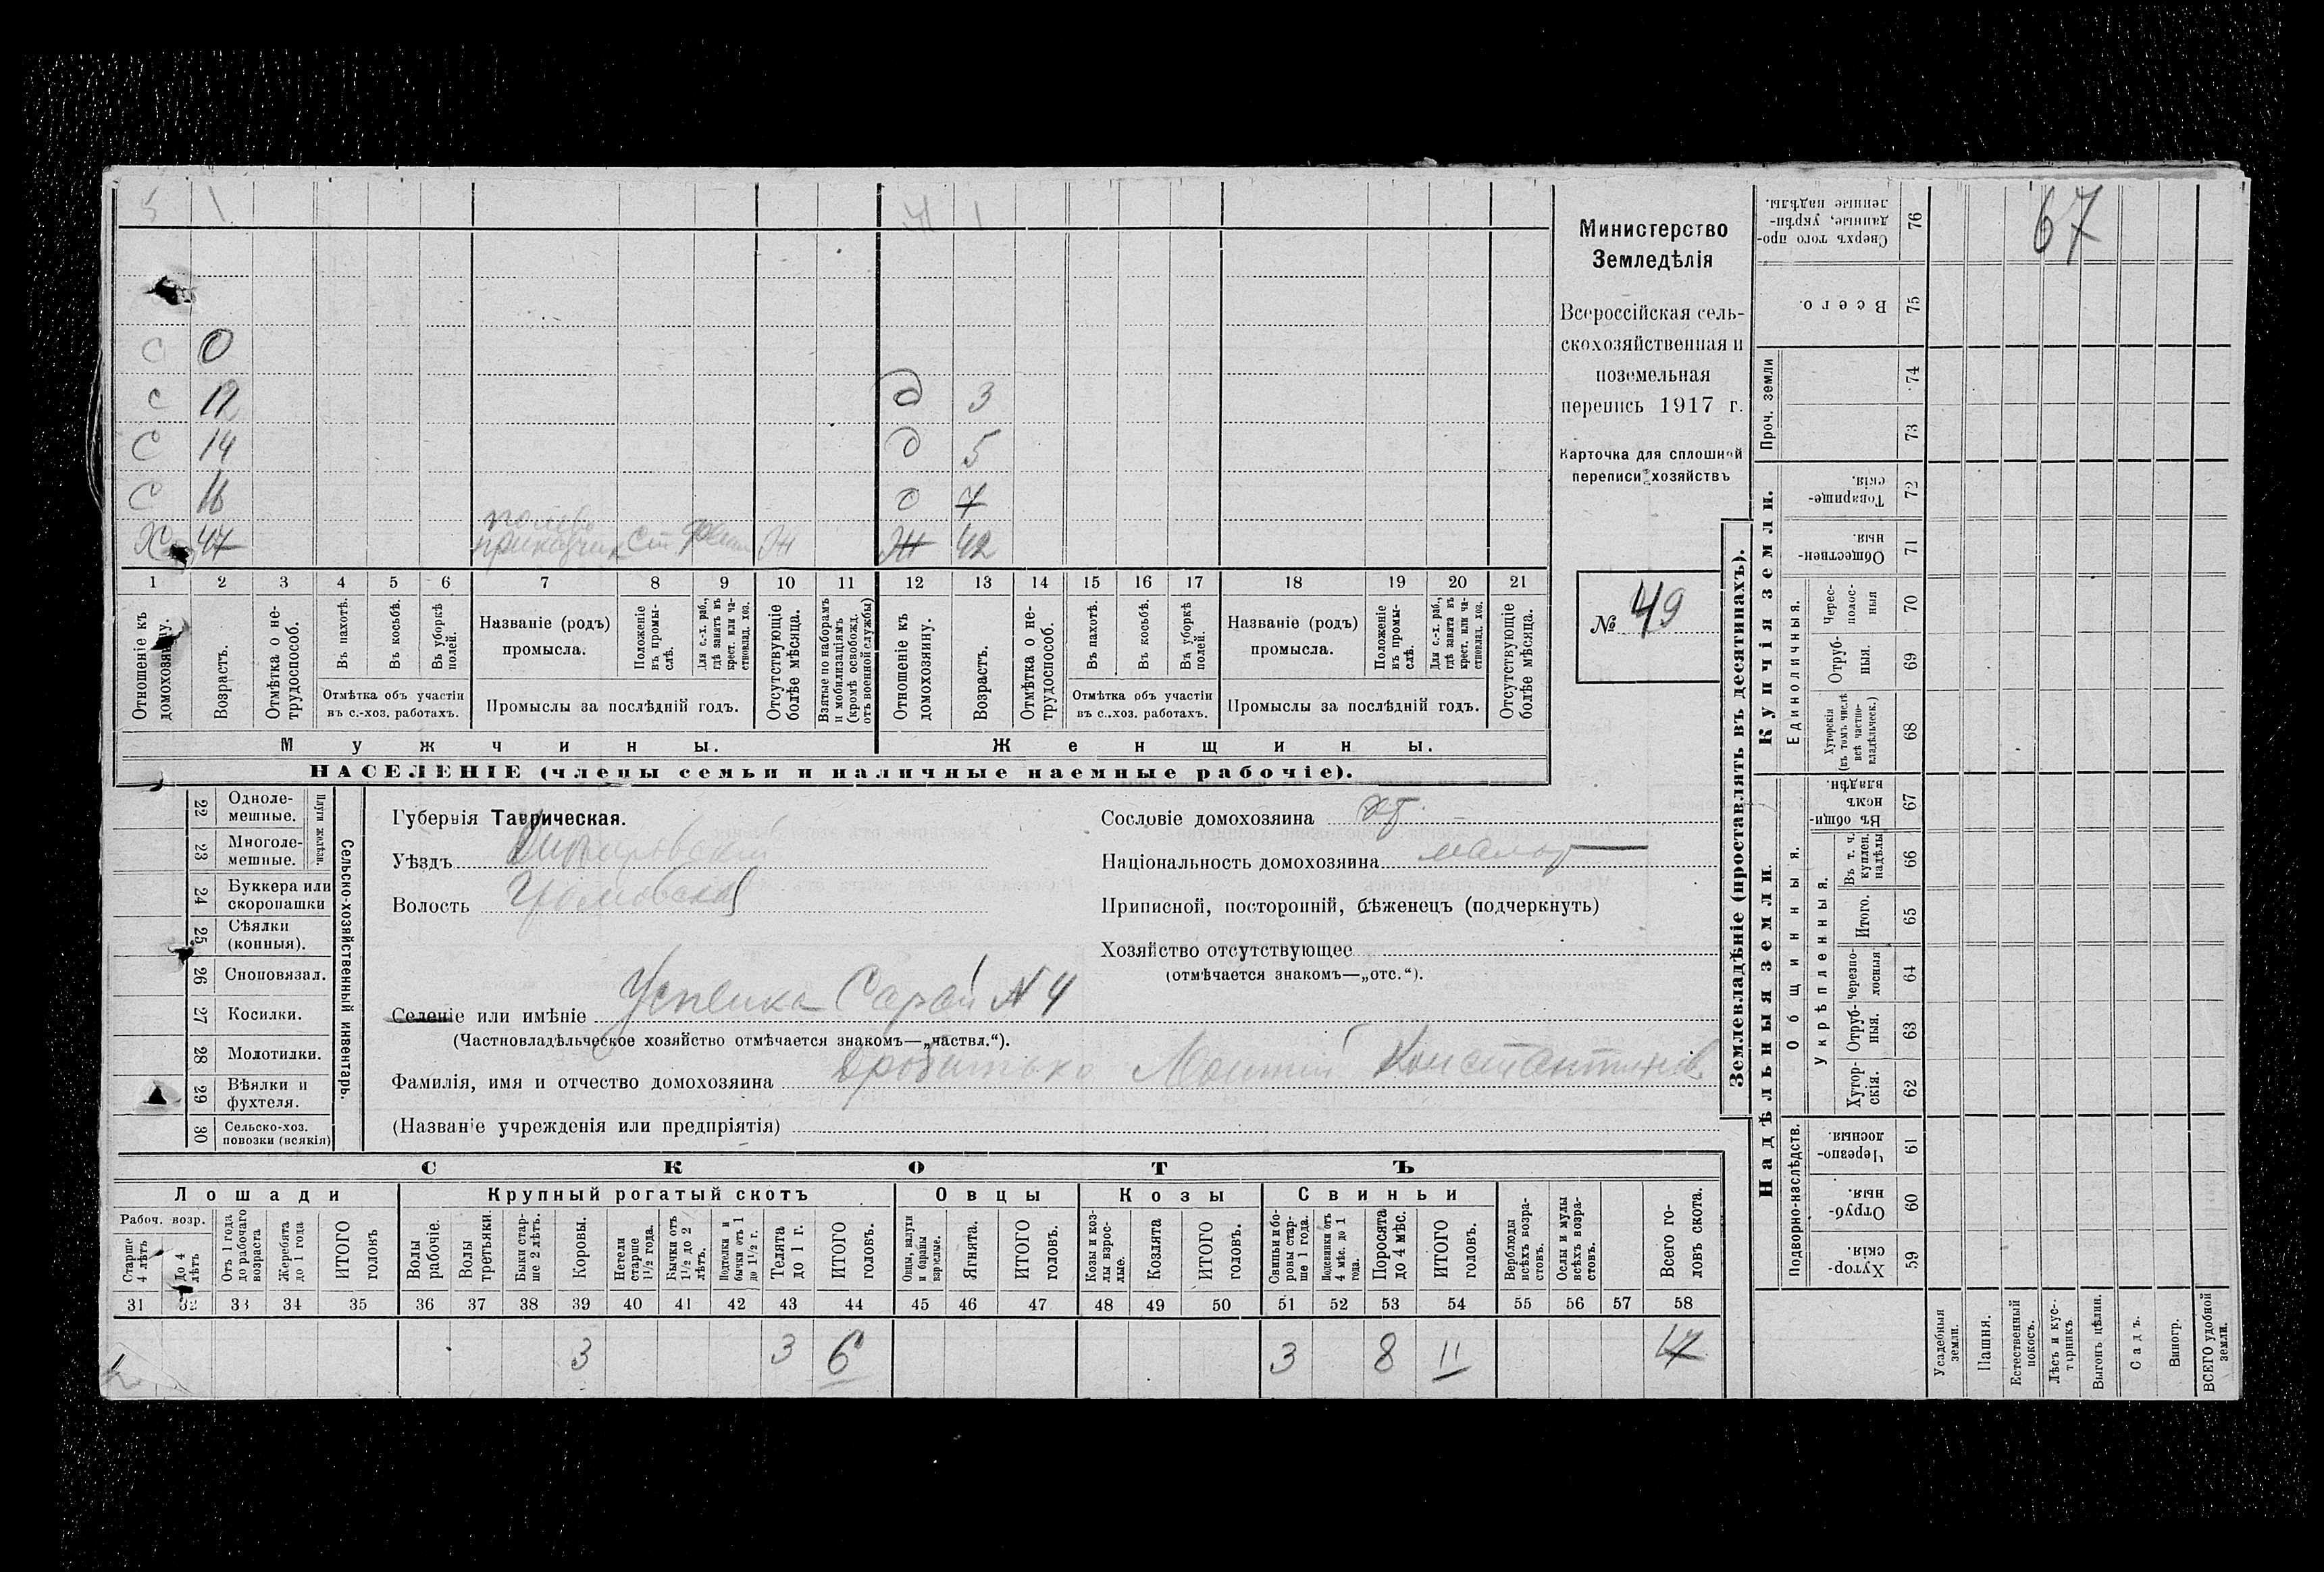 5 1 4 1
С 0
С 12 д 3
С 14 д 5
С 16 д 7
Х 47 полев. приказчик Ж 42
1 2 3 4 5 6 7 8 9 10 11 12 13 14 15 16 17 18 19 20 21
Отношеніе къ домохозяину.
Возрастъ.
Отмѣтка о нетрудоспособ.
Въ пахотѣ.
Въ косьбѣ.
Въ уборкѣ полей.
Отмѣтка объ участіи въ с.-хоз. работахъ.
Названіе (родъ) промысла.
Положеніе въ промыслѣ.
Для с.-х. раб., гдѣ занятъ въ крест. или частновлад. хоз.
Промыслы за послѣдній годъ.
Отсутствующіе болѣе мѣсяца.
Взятые по наборамъ и мобилизаціямъ (кромѣ освобожд. отъ военной службы)
Отношеніе къ домохозяину.
Возрастъ.
Отмѣтка о нетрудоспособ.
Въ пахотѣ.
Въ косьбѣ.
Въ уборкѣ полей.
Отмѣтка объ участіи въ с.-хоз. работахъ.
Названіе (родъ) промысла.
Положеніе въ промыслѣ.
Для с.-х. раб., гдѣ занята въ крест. или частновлад. хоз.
Промыслы за послѣдній годъ.
Отсутствующіе болѣе мѣсяца.
Мужчины. Женщины.
НАСЕЛЕНІЕ (члены семьи и наличные наемные рабочіе).
Министерство
Земледѣлія
Всероссійская сель-
скохозяйственная и
поземельная
перепись 1917 г.
Карточка для сплошной
переписи хозяйствъ
№ 49
22 Одноле-
мешные.
23 Многоле-
мешные.
Плуги желѣзн.
24 Буккера или
скоропашки
25 Сѣялки
(конныя).
26 Сноповязал.
27 Косилки.
28 Молотилки.
29 Вѣялки и
фухтеля.
30 Сельско-хоз.
повозки (всякія)
Сельско-хозяйственный инвентарь.
Губернія Таврическая.
Уѣздъ Днепровский
Волость Громовская
Селеніе или имѣніе Успенка Сарай N 4
(Частновладѣльческое хозяйство отмѣчается знакомъ—„частвл.“).
Фамилія, имя и отчество домохозяина Дробитько Константинов.
(Названіе учрежденія или предпріятія)
Сословіе домохозяина
Національность домохозяина малор
Приписной, посторонній, бѣженецъ (подчеркнуть)
Хозяйство отсутствующее
(отмѣчается знакомъ—„отс.“).
СКОТЪ
Лошади Крупный рогатый скотъ Овцы Козы Свиньи
Рабоч. возр.
Старше 4 лѣтъ
До 4 лѣтъ
Отъ 1 года до рабочаго возраста
Жеребята до 1 года
ИТОГО головъ
Волы рабочіе.
Волы третьяки.
Быки старше 2 лѣтъ.
Коровы.
Нетели старше 1 1/2 года.
Бычки отъ 1 1/2 до 2 лѣтъ.
Подтелки и бычки отъ 1 до 1 1/2 г.
Телята до 1 г.
ИТОГО головъ.
Овцы, валухи и бараны взрослые.
Ягнята.
ИТОГО головъ.
Козы и козлы взрослые.
Козлята
ИТОГО головъ.
Свиньи и боровы старше 1 года.
Подсвинки отъ 4 мѣс. до 1 года.
Поросята до 4 мѣс.
ИТОГО головъ.
Верблюды всѣхъ возрастовъ.
Ослы и мулы всѣхъ возрастовъ.
Всего головъ скота.
31 32 33 34 35 36 37 38 39 40 41 42 43 44 45 46 47 48 49 50 51 52 53 54 55 56 57 58
3 3 6 3 8 11 17
Землевладѣніе (проставлять въ десятинахъ).
Надѣльныя земли. Купчія земли.
Проч. земли
Подворно-наслѣдств.
Общинныя.
Укрѣпленныя.
Единоличныя.
Сверхъ того проданные, укрѣпленные надѣлы. 76
67
Всего. 75
74
73
Товарищескія. 72
Общественныя. 71
Чересполосныя 70
Отрубныя. 69
Хуторскія (въ томъ числѣ всѣ частновладѣльческ.) 68
Въ общинномъ владѣн. 67
Въ т. ч. куплен. надѣлы 66
Итого. 65
Черезполосныя 64
Отрубныя. 63
Хуторскія. 62
Черезполосныя. 61
Отрубныя. 60
Хуторскія. 59
Усадебныя земли.
Пашня.
Естественный покосъ.
Лѣсъ и кустарникъ
Выгонъ цѣлин.
Садъ.
Виногр.
ВСЕГО удобной земли.